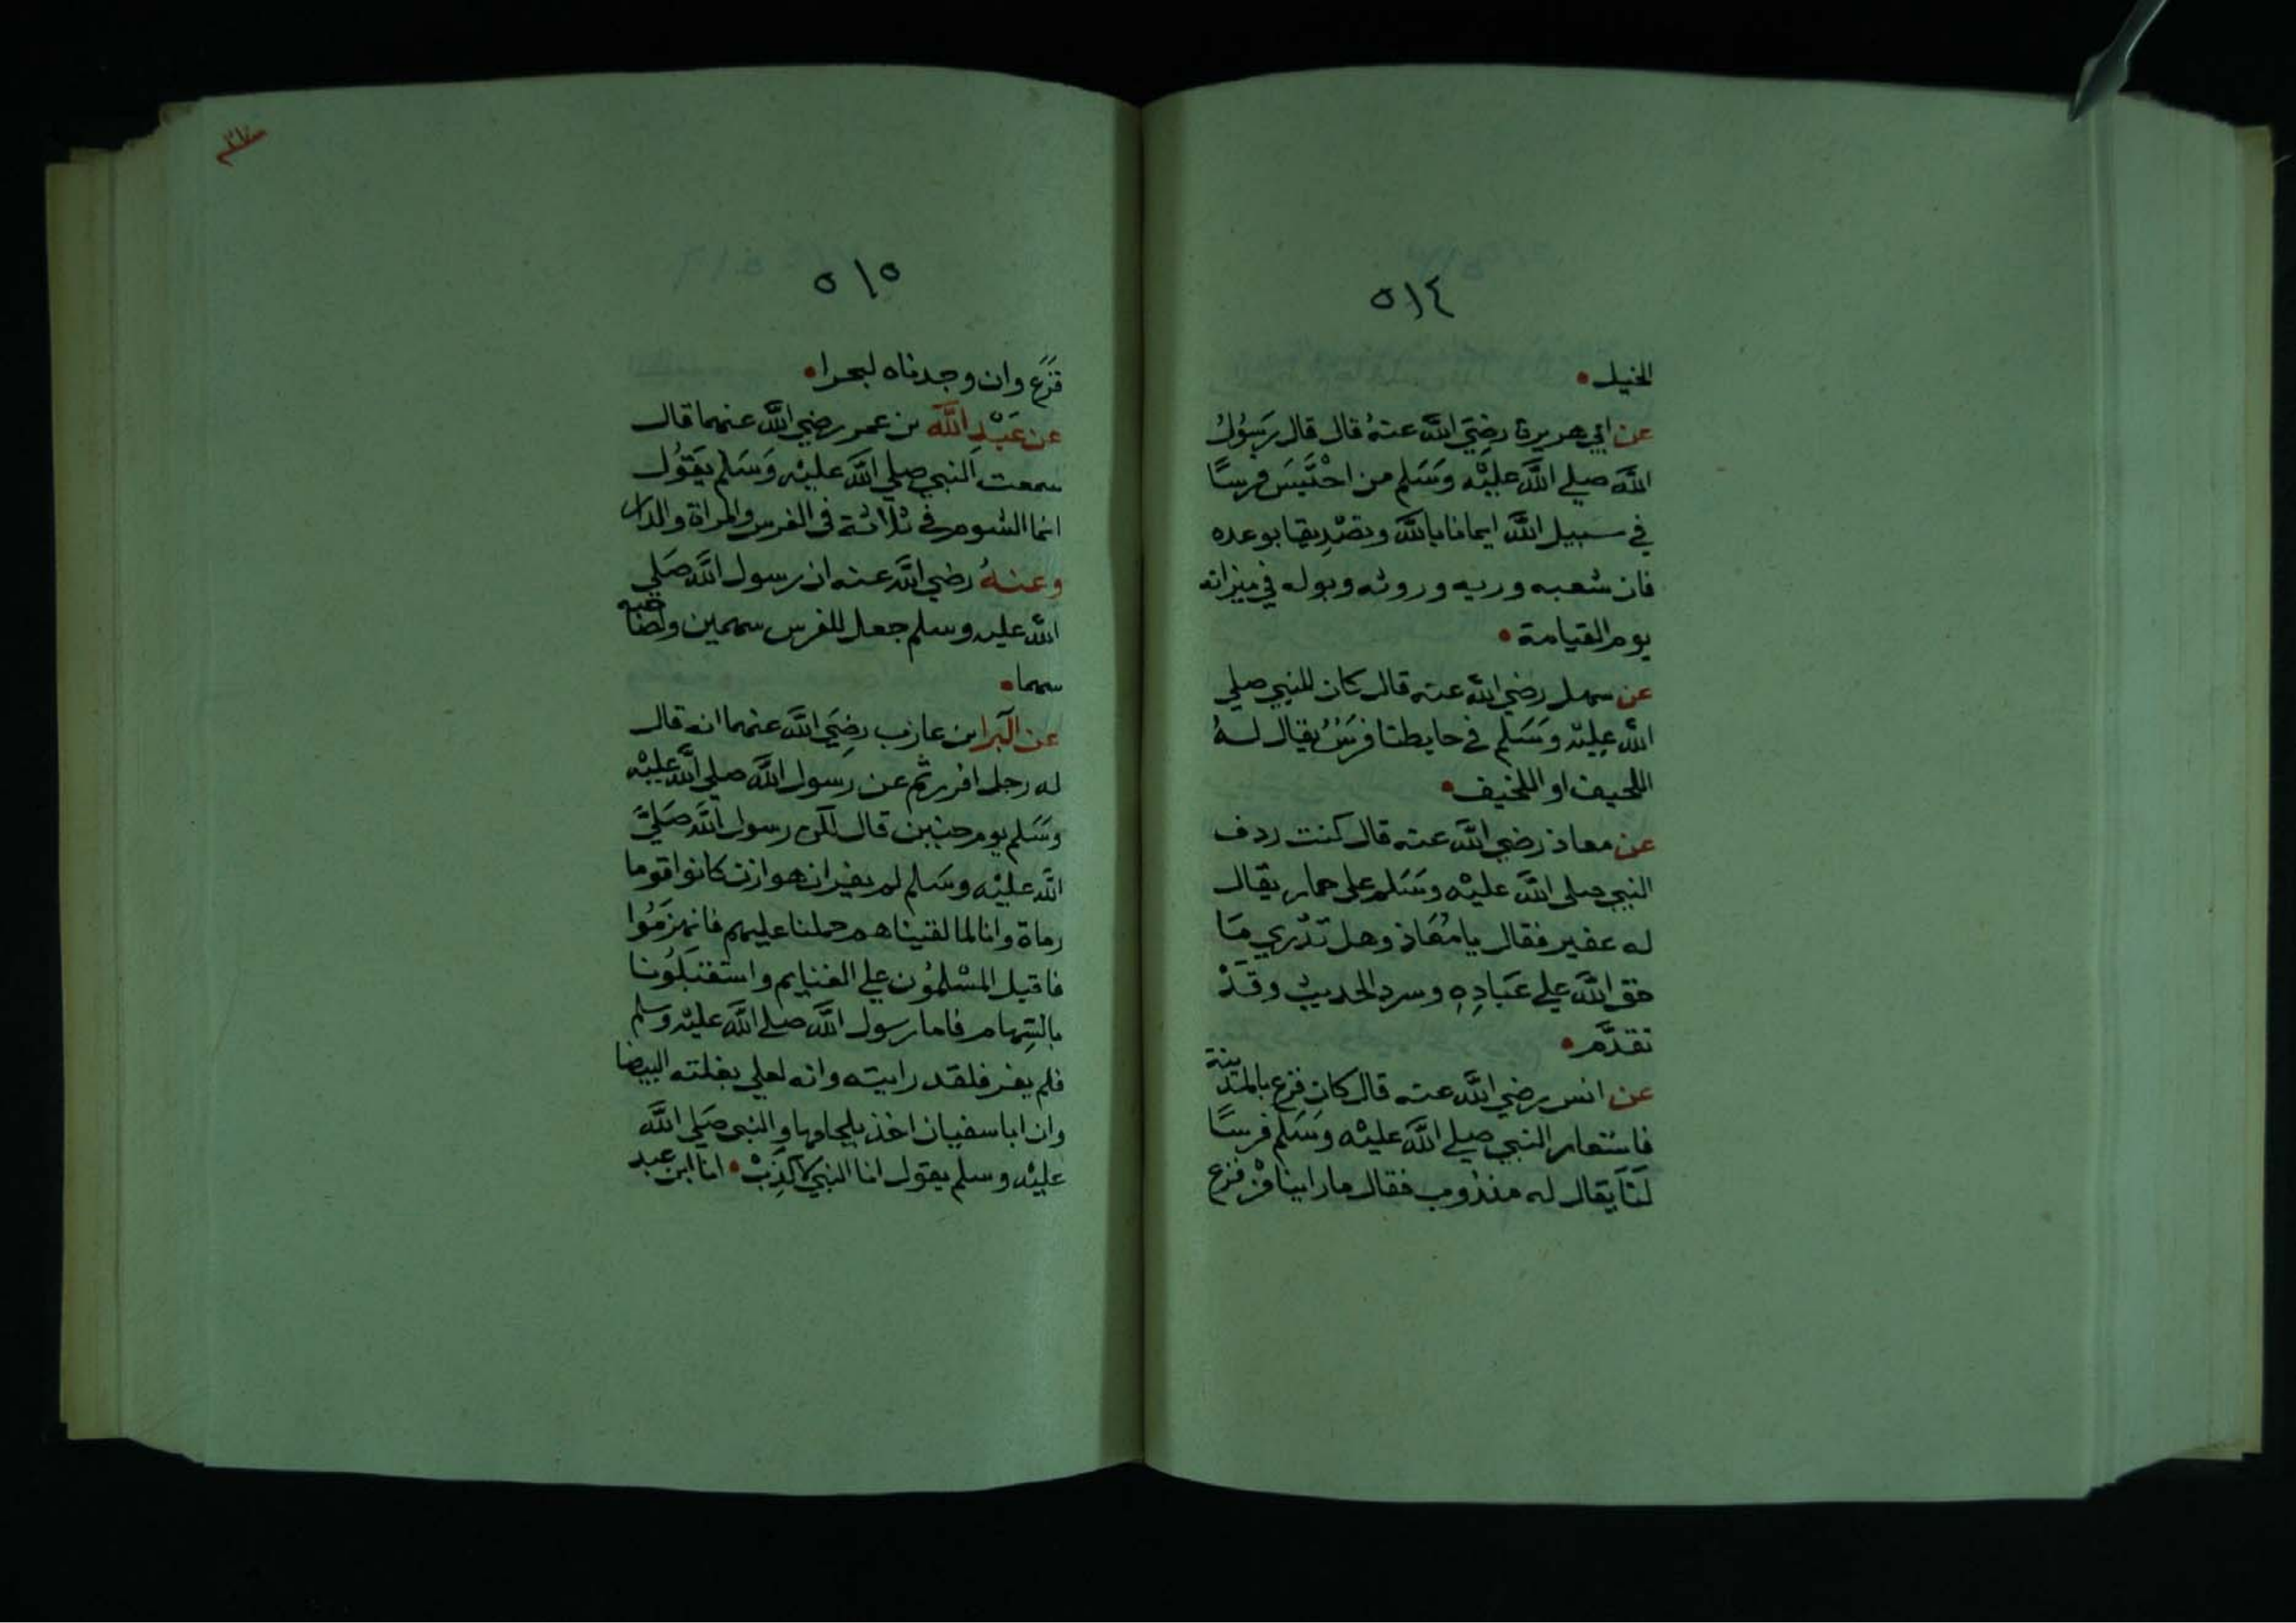 ٥١٤
الخيل •
عن ابي هريرة رضِيَ الله عنهُ قال قال رَسُولُ
الله صلي الله عليْه وَسَلم من احْتَبَسَ فرسًا
في سبيل الله ايمانا بالله وتصْدِيقا بوعده
فان شعبه وريه وروثه وبوله في ميزانه
يوم القيامة •
عن سهل رضي الله عنه قال كان للنبي صلي
الله عليْه وَسَلم في حايطنا فرَسٌ يقال لهُ
اللحيف او اللخيف •
عن معاذ رضي الله عنه قال كنت ردف
النبي صلي الله عليْه وسَلم على حمار يقال
له عفير فقال يا مُعَاذ وهل تدْري مَا
حق الله علي عبَادِهِ وسرد الحديث وقدْ
تقدَّم •
عن انس رضي الله عنه قال كان فزع بالمدينة
فاستعار النبي صلي الله عليْه وسَلم فرسًا
لنَا يقال له مندُوب فقال ما راينا منْ فزع
٣١٧
٥١٥
فزَع وان وجدناه لبحرا •
عن عَبْدِ اللَّه بن عمر رضي الله عنهما قال
سمعت النبي صلي الله عليْه وَسَلم يَقوُل
انما الشوم في ثلاثة في الفرس والمراة والدار
وعنهُ رضي الله عنه ان رسول الله صَلي
الله عليه وسلم جعل للفرس سهمين ولصاحبه
سهما •
عن البرا بن عازب رضِيَ الله عنهما انه قال
له رجل افررتم عن رسول الله صلي الله عليْه
وسَلم يوم حنين قال لكن رسول الله صَليَّ
الله عليْه وسَلم لم يفر ان هوازن كانوا قوما
رماة وانا لما لقيناهم حملنا عليهم فانهزمُوا
فاقبل المسْلموُن علي الغنايم واستقبَلوُنا
بالسِهام فاما رسول الله صلي الله عليْه وسلم
فلم يفر فلقد رايته وانه لعلي بغلته البيضا
وان ابا سفيان اخذ بلجامها والنبي صَلي الله
عليْه وسلم يقول انا النبي لا كذِبْ • انا ابن عبد